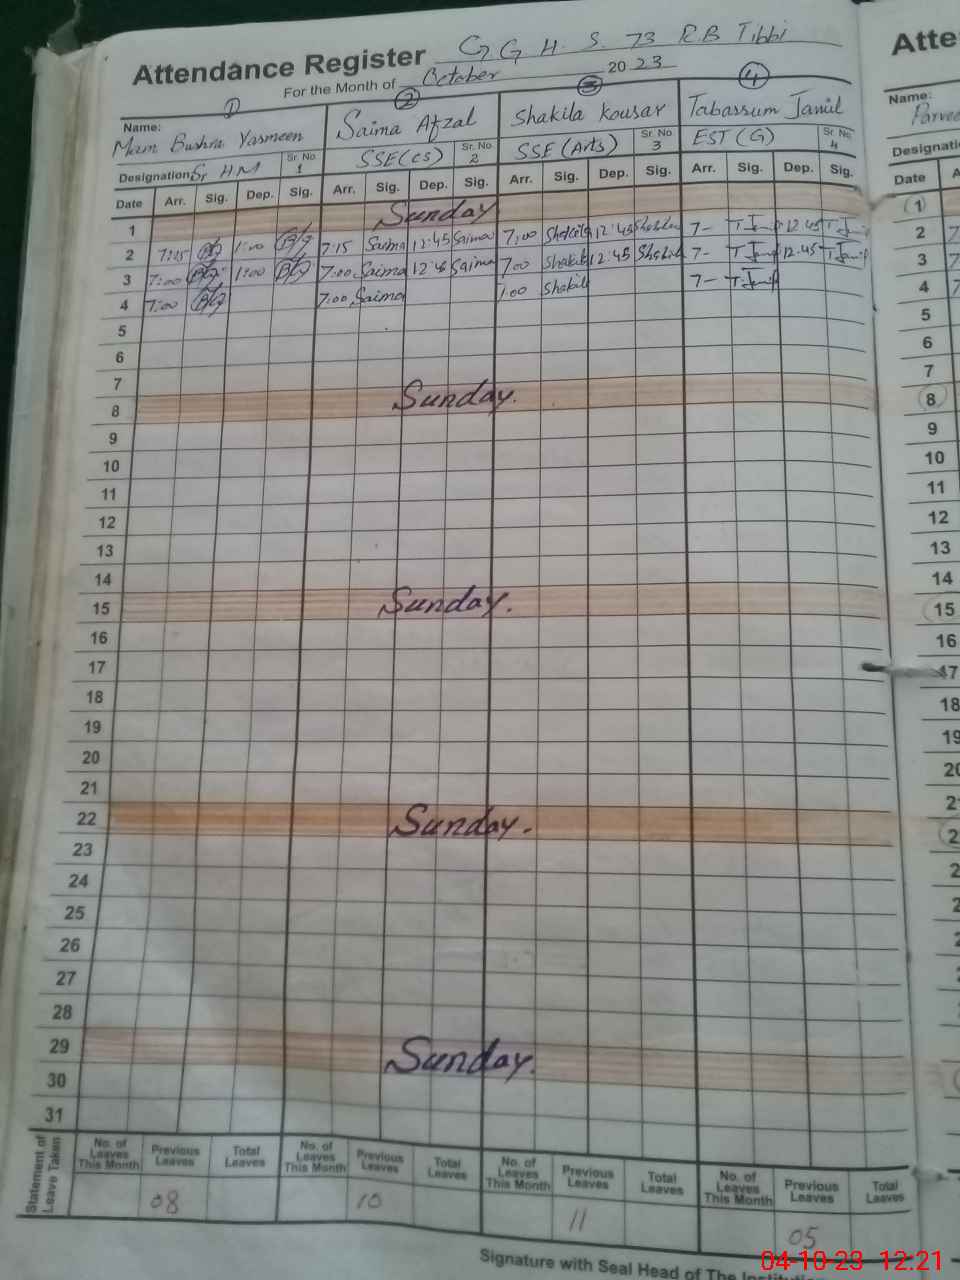 Attendance Register G G H. S. 73 R B Tibbi
For the Month of October 2023
① ② ③ ④
Name: Mam Bushra Yasmeen Saima Afzal Shakila Kousar Tabassum Jamil
Designation: Sr HM Sr. No. 1 SSE(CS) Sr. No. 2 SSE (Arts) Sr. No. 3 EST (G) Sr. No. 4
Date Arr. Sig. Dep. Sig. Arr. Sig. Dep. Sig. Arr. Sig. Dep. Sig. Arr. Sig. Dep. Sig.
1 Sunday
2 7:15 1:00 7:15 Saima 12:45 Saima 7:00 Shakila 12:45 Shakila 7- T Jamil 12.45 T Jamil
3 7:00 1:00 7:00 Saima 12:45 Saima 7:00 Shakila 12:45 Shakila 7- T Jamil 12.45 T Jamil
4 7:00 7:00 Saima 7:00 Shakila 7- T Jamil
5
6
7
8 Sunday.
9
10
11
12
13
14
15 Sunday.
16
17
18
19
20
21
22 Sunday.
23
24
25
26
27
28
29 Sunday.
30
31
Statement of Leave Taken
No. of Leaves This Month Previous Leaves Total Leaves No. of Leaves This Month Previous Leaves Total Leaves No. of Leaves This Month Previous Leaves Total Leaves No. of Leaves This Month Previous Leaves Total Leaves
08 10 11 05
Signature with Seal Head of The
Atte
Name:
Designati
Date A
1
2 7
3 7
4 7
5
6
7
8
9
10
11
12
13
14
15
16
17
18
19
20
04-10-23 12:21